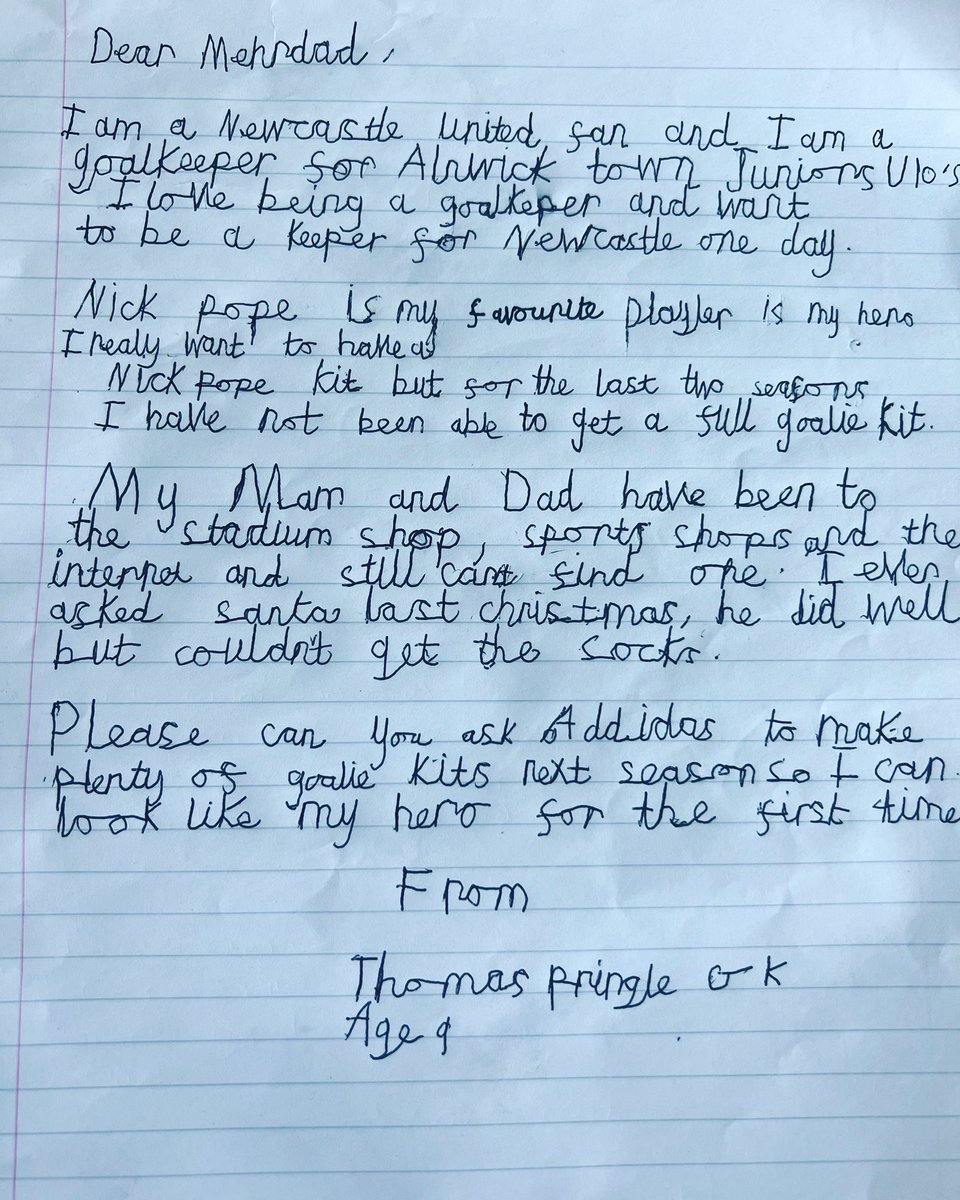 Dear Mehrdad,
I am a Newcastle United fan and I am a
goalkeeper for Alnwick town Juniors U10's
I love being a goalkeper and want
to be a keeper for Newcastle one day.
Nick pope is my favourite player is my hero
I realy want to have a
Nick pope kit but for the last two seasons
I have not been able to get a full goalie kit.
My Mam and Dad have been to
the stadium shop, sports shops and the
internet and still cant find one. I even
asked santa last christmas, he did well
but couldn't get the socks.
Please can you ask Addidas to make
plenty of goalie kits next season so I can
look like my hero for the first time
From
Thomas pringle GK
Age 9